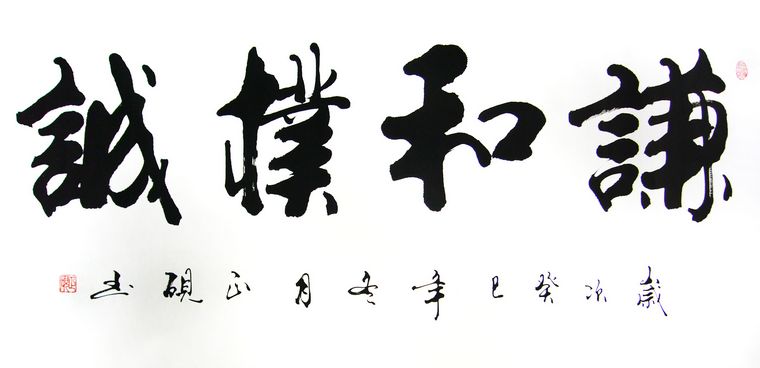 謙和樸誠
歲次癸巳年冬月正硯书